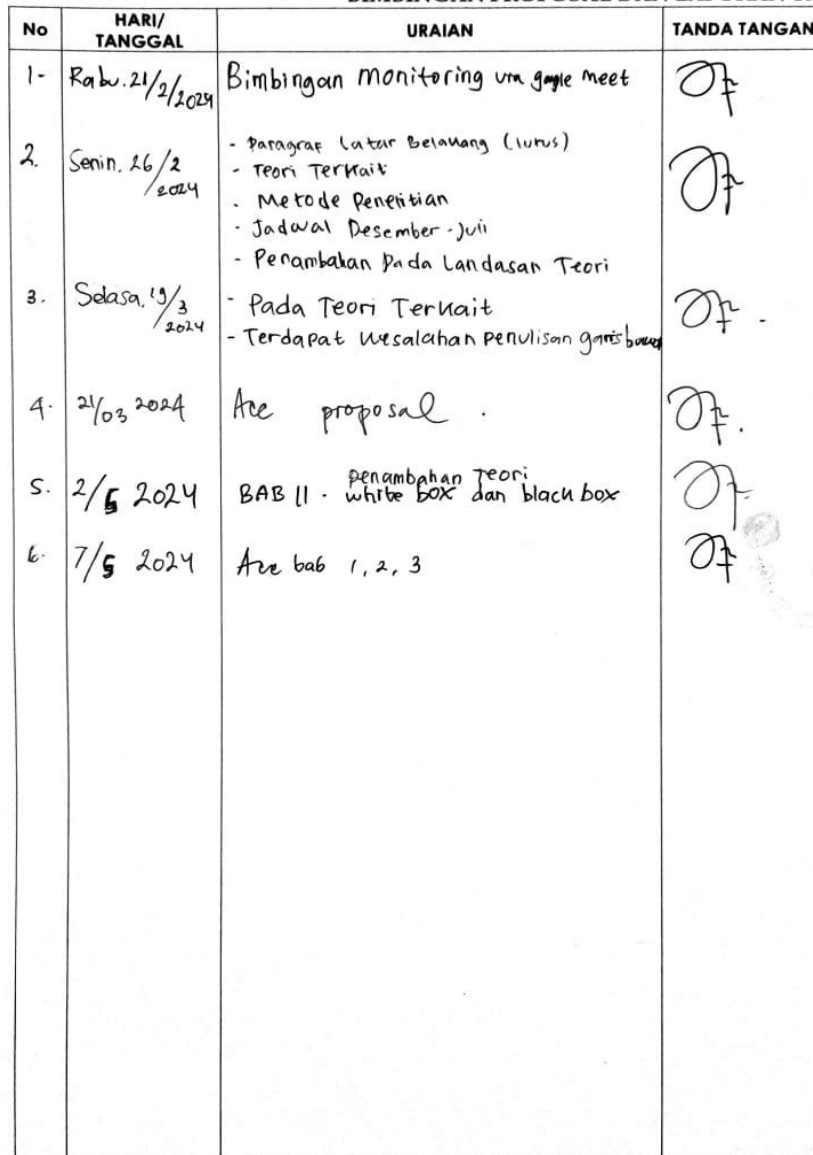 No HARI/ TANGGAL URAIAN TANDA TANGAN
1- Rabu. 21/2/2024 Bimbingan monitoring via google meet
2. Senin. 26/2/2024 - Paragraf Latar Belakang (lurus)
- Teori Terkait
. Metode Penelitian
- Jadwal Desember - Juli
- Penambahan Pada Landasan Teori
3. Selasa. 19/3/2024 - Pada Teori Terkait
- Terdapat kesalahan penulisan garis bawah
4. 21/03 2024 Acc proposal .
5. 2/5 2024 BAB II . penambahan Teori
white box dan black box
6. 7/5 2024 Acc bab 1, 2, 3